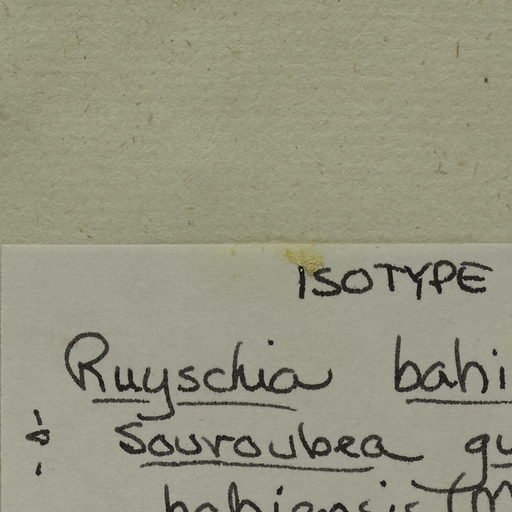 ISOTYPE
Ruyschia bahi
& Souroubea gu
bahiensis (M